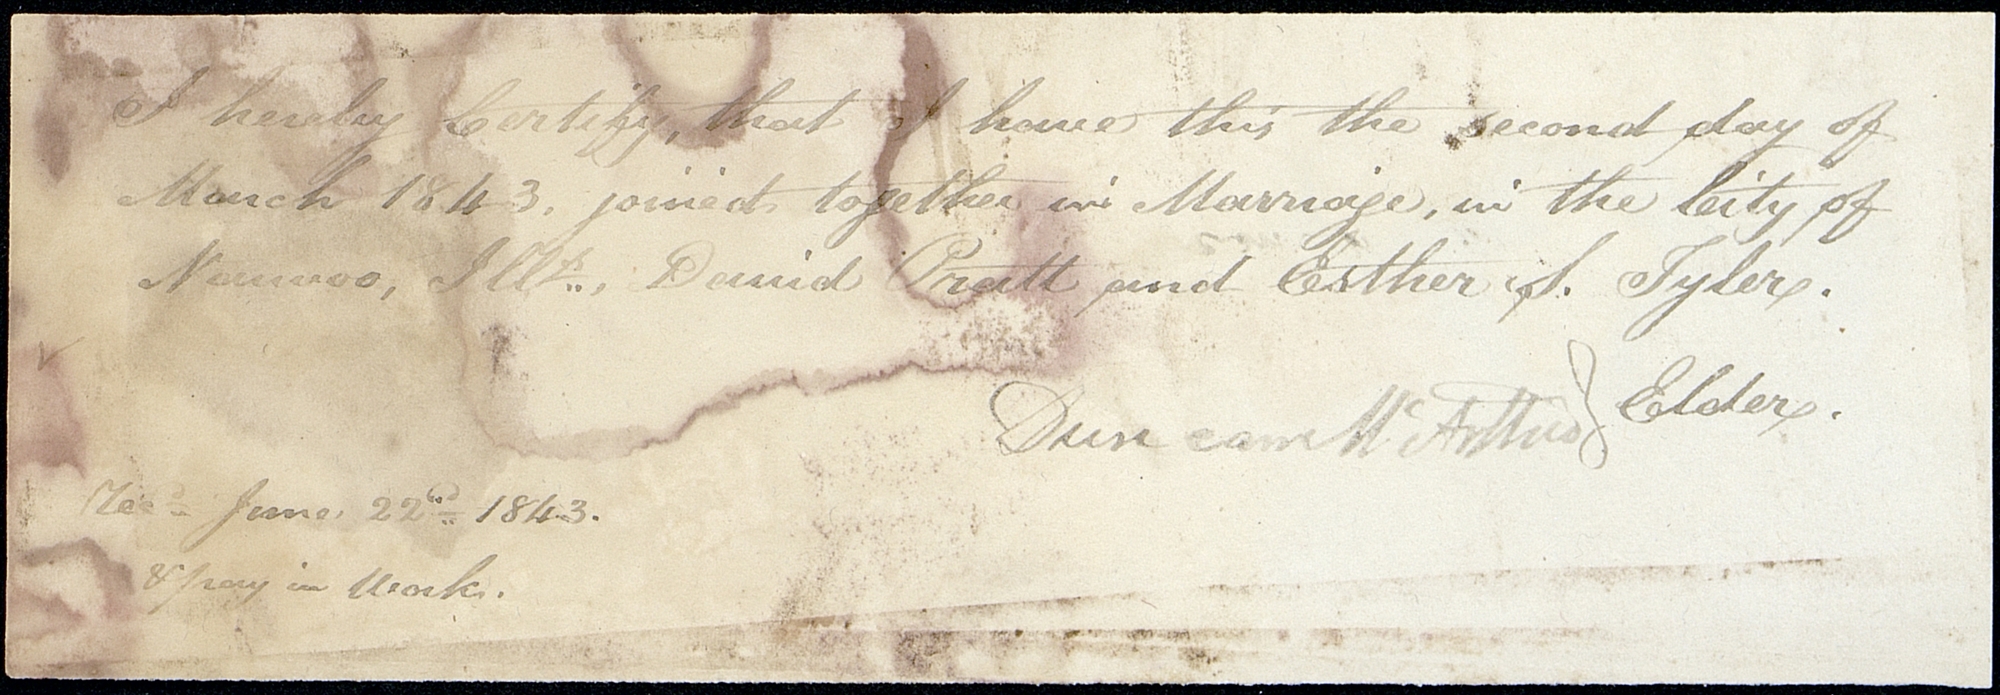 I hereby Certify, that I have this the second day of
March 1843. joined together in Marriage, in the City of
Nauvoo, Ills., David Pratt and Esther S. Tyler.
Duncan McArthur } Elder.
Recd June 22nd 1843.
& pay in Work.